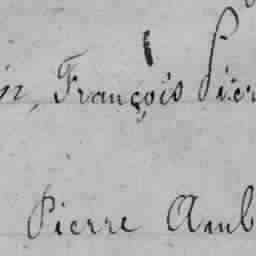 in, François Pier
Pierre Amb